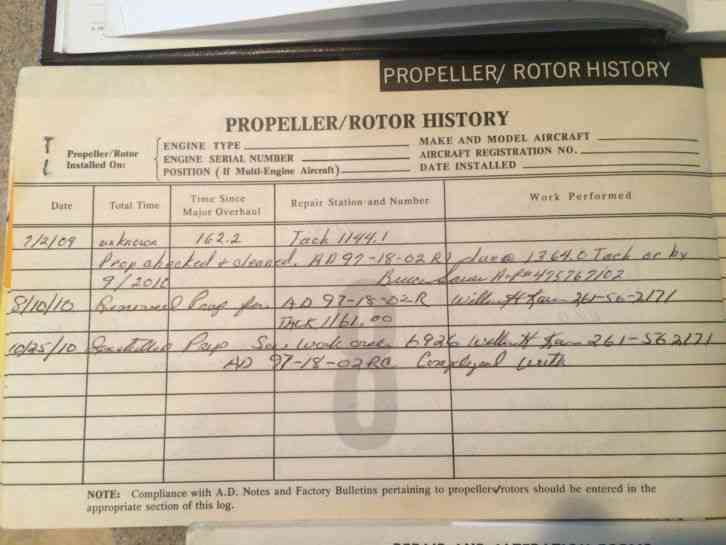 PROPELLER/ ROTOR HISTORY
PROPELLER/ROTOR HISTORY
Propeller/Rotor Installed On:
ENGINE TYPE
ENGINE SERIAL NUMBER
POSITION (If Multi-Engine Aircraft)
MAKE AND MODEL AIRCRAFT
AIRCRAFT REGISTRATION NO.
DATE INSTALLED
Date Total Time Time Since Major Overhaul Repair Station and Number Work Performed
7/2/09 unknown 162.2 Tach 1144.1
Prop checked & cleaned. AD 97-18-02R1 due @ 1364.0 Tach or by
9/2010 Bruce A+P# 475767102
8/10/10 Removed Prop for AD 97-18-02R 261-56-2171
TACK 1161.00
10/25/10 Installed Prop See work order 6926 261-562171
AD 97-18-02R Complyed with
NOTE: Compliance with A.D. Notes and Factory Bulletins pertaining to propellers/rotors should be entered in the
appropriate section of this log.